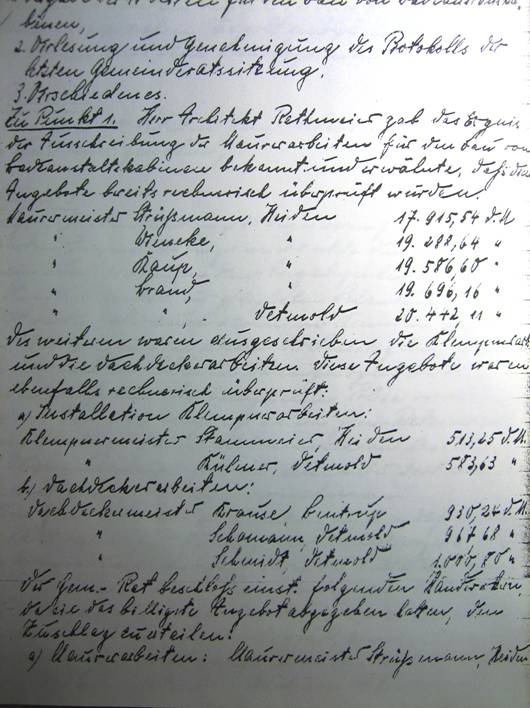 für den Bau von Badeanstaltska-
binen,
2. Verlesung und Genehmigung des Protokolls der
letzten Gemeinderatssitzung.
3. Verschiedenes.
Zu Punkt 1. Herr Architekt Rethmeier gab das Ergebnis
der Ausschreibung der Maurerarbeiten für den Bau von
Badeanstaltskabinen bekannt und erwähnte, daß die
Angebote bereits rechnerisch überprüft wurden.
Maurermeister Strüßmann, Heiden 17.915,54 d.M.
" Wieneke, " 19.288,64 "
" Kaup, " 19.586,60 "
" Brand, " 19.696,16 "
" " , Detmold 20.442 11 "
Des weiteren waren ausgeschrieben die Klempnerarb
und die Dachdeckerarbeiten. Diese Angebote waren
ebenfalls rechnerisch überprüft:
a) Installation Klempnerarbeiten:
Klempnermeister Stammeier Heiden 513,25 d.M.
" Külmer, Detmold 583,63 "
b) Dachdeckerarbeiten:
Dachdeckermeister Krause, Bentrup 930,24 d.M.
" Schomann, Detmold 967 68 "
" Schmidt, Detmold 1.000,80 "
Der Gem.- Rat beschloß einst. folgenden Handwerkern,
da sie das billigste Angebot abgegeben hatten, den
Zuschlag zu erteilen:
a) Maurerarbeiten: Maurermeister Strüßmann, Heiden